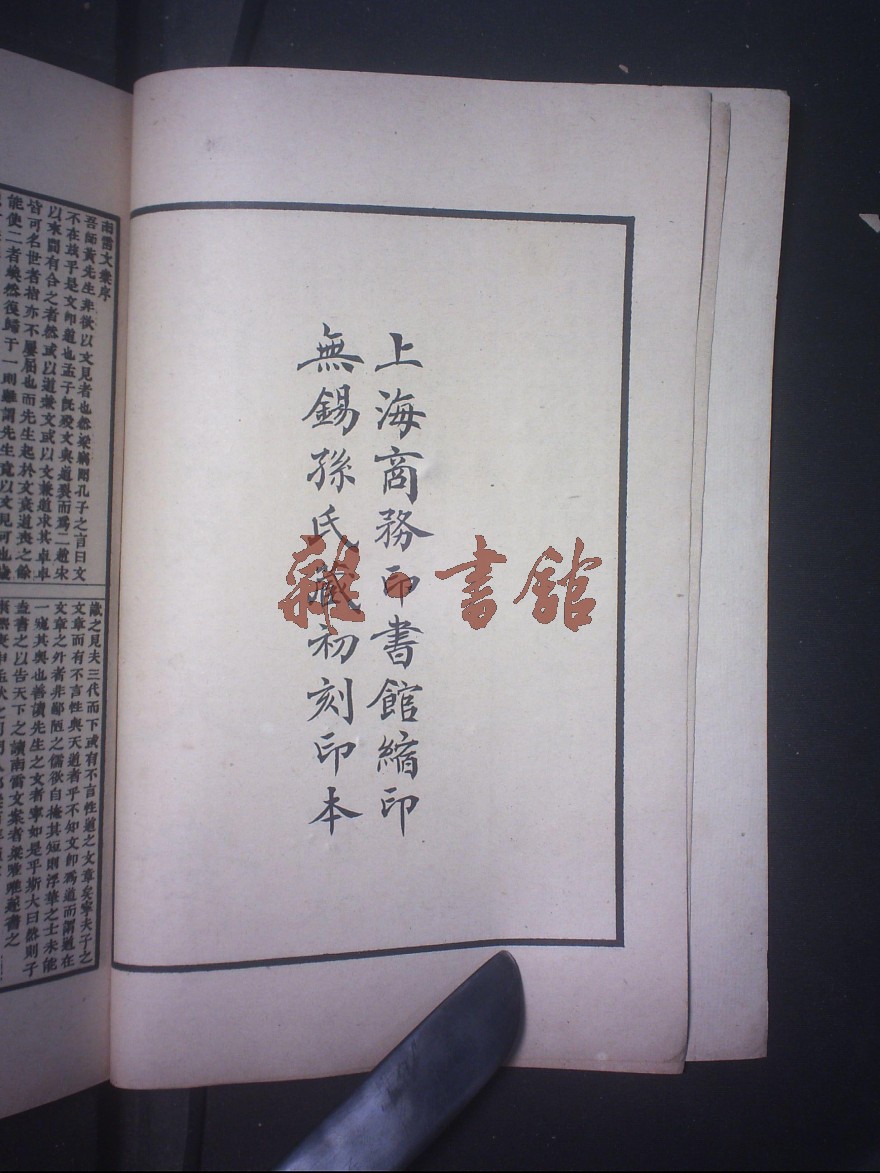 上海商務印書館縮印
無錫孫氏藏初刻印本
雜·書館
南雷文案序
吾師黃先生非欲以文見者也然梁嘗聞孔子之言曰文
不在茲乎是文卽道也孟子旣歿文與道裂而爲二趙宋
以來間有合之者然或以道兼文或以文兼道求其卓卓
皆可名世者指亦不屢屈也而先生起於文衰道喪之餘
能使二者煥然復歸于一則雖謂先生竟以文見可也
識之見夫三代而下或有不言性道之文章矣寧夫子之
文章而有不言性與天道者乎不知文卽爲道而謂道在
文章之外者非鄙陋之儒欲自掩其短則浮華之士未能
一窺其奧也善讀先生之文者寧如是乎斯大曰然則子
盍書之以告天下之讀南雷文案者梁唯唯遂書之